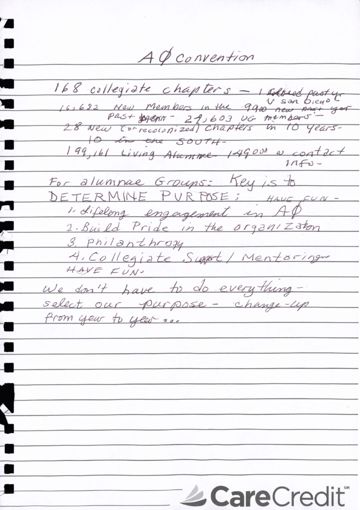 AØ Convention
168 collegiate chapters - 1 past yr
U San Diego
16,682 New Members in the past year
- 24,603 UG members -
28 New (or recolonized) chapters in 10 years -
10 in the SOUTH -
199,161 Living Alumnae contact
info -
For alumnae Groups: Key is to
DETERMINE PURPOSE: HAVE FUN -
1. Lifelong engagement in AØ
2. Build Pride in the organization
3. Philanthropy
4. Collegiate Support / Mentoring
HAVE FUN -
We don't have to do everything -
select our purpose - change-up
from year to year ...
CareCredit